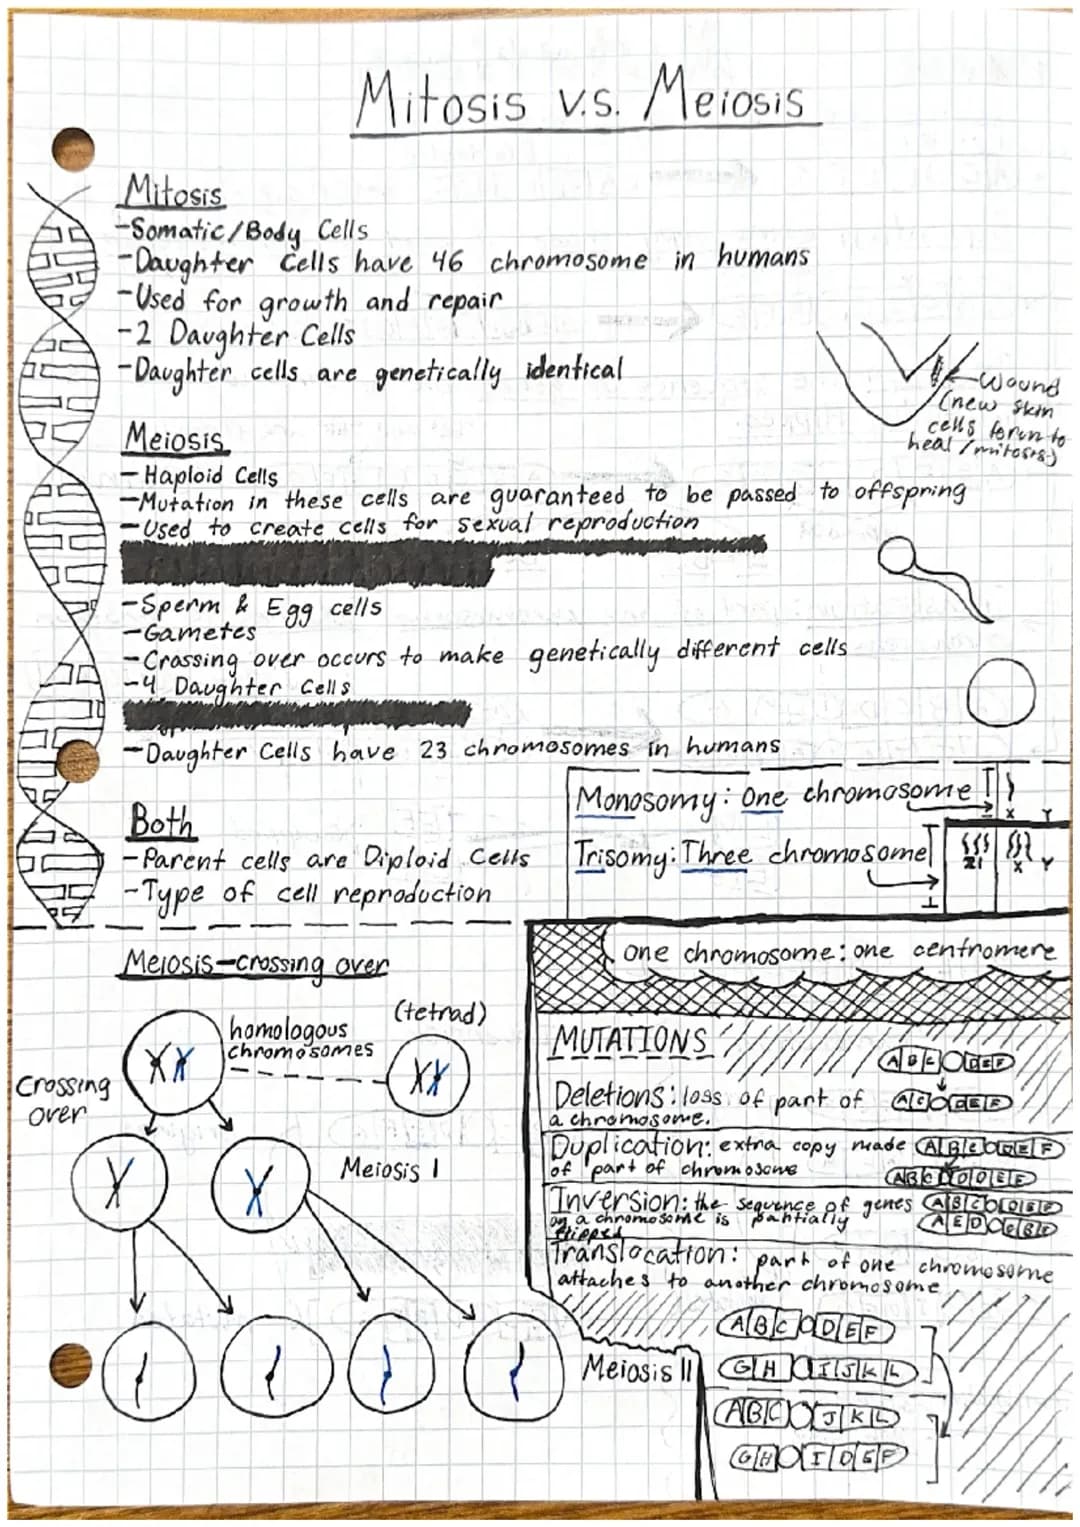 Mitosis v.s. Meiosis
Mitosis
-Somatic/Body Cells
-Daughter Cells have 46 chromosome in humans
-Used for growth and repair
-2 Daughter Cells
-Daughter cells are genetically identical
Wound
(new skin
cells form to
heal/mitosis)
Meiosis
-Haploid Cells
-Mutation in these cells are guaranteed to be passed to offspring
-Used to create cells for sexual reproduction
-Sperm & Egg cells
-Gametes
-Crossing over occurs to make genetically different cells
-4 Daughter Cells
-Daughter Cells have 23 chromosomes in humans
Monosomy: One chromosome
X Y
Trisomy: Three chromosome
21 X Y
Both
-Parent cells are Diploid Cells
-Type of cell reproduction
one chromosome: one centromere
Meiosis-crossing over
(tetrad)
homologous
chromosomes
Crossing
over
Meiosis I
Meiosis II
MUTATIONS
A B C D E F
Deletions: loss of part of
a chromosome.
A C D E F
Duplication: extra copy made
of part of chromosome
A B C D E F
Inversion: the sequence of genes
on a chromosome is partially
flipped
A B C D E F
Translocation: part of one chromosome
attaches to another chromosome
A B C D E F
G H I J K L
A B C J K L
G H I D E F